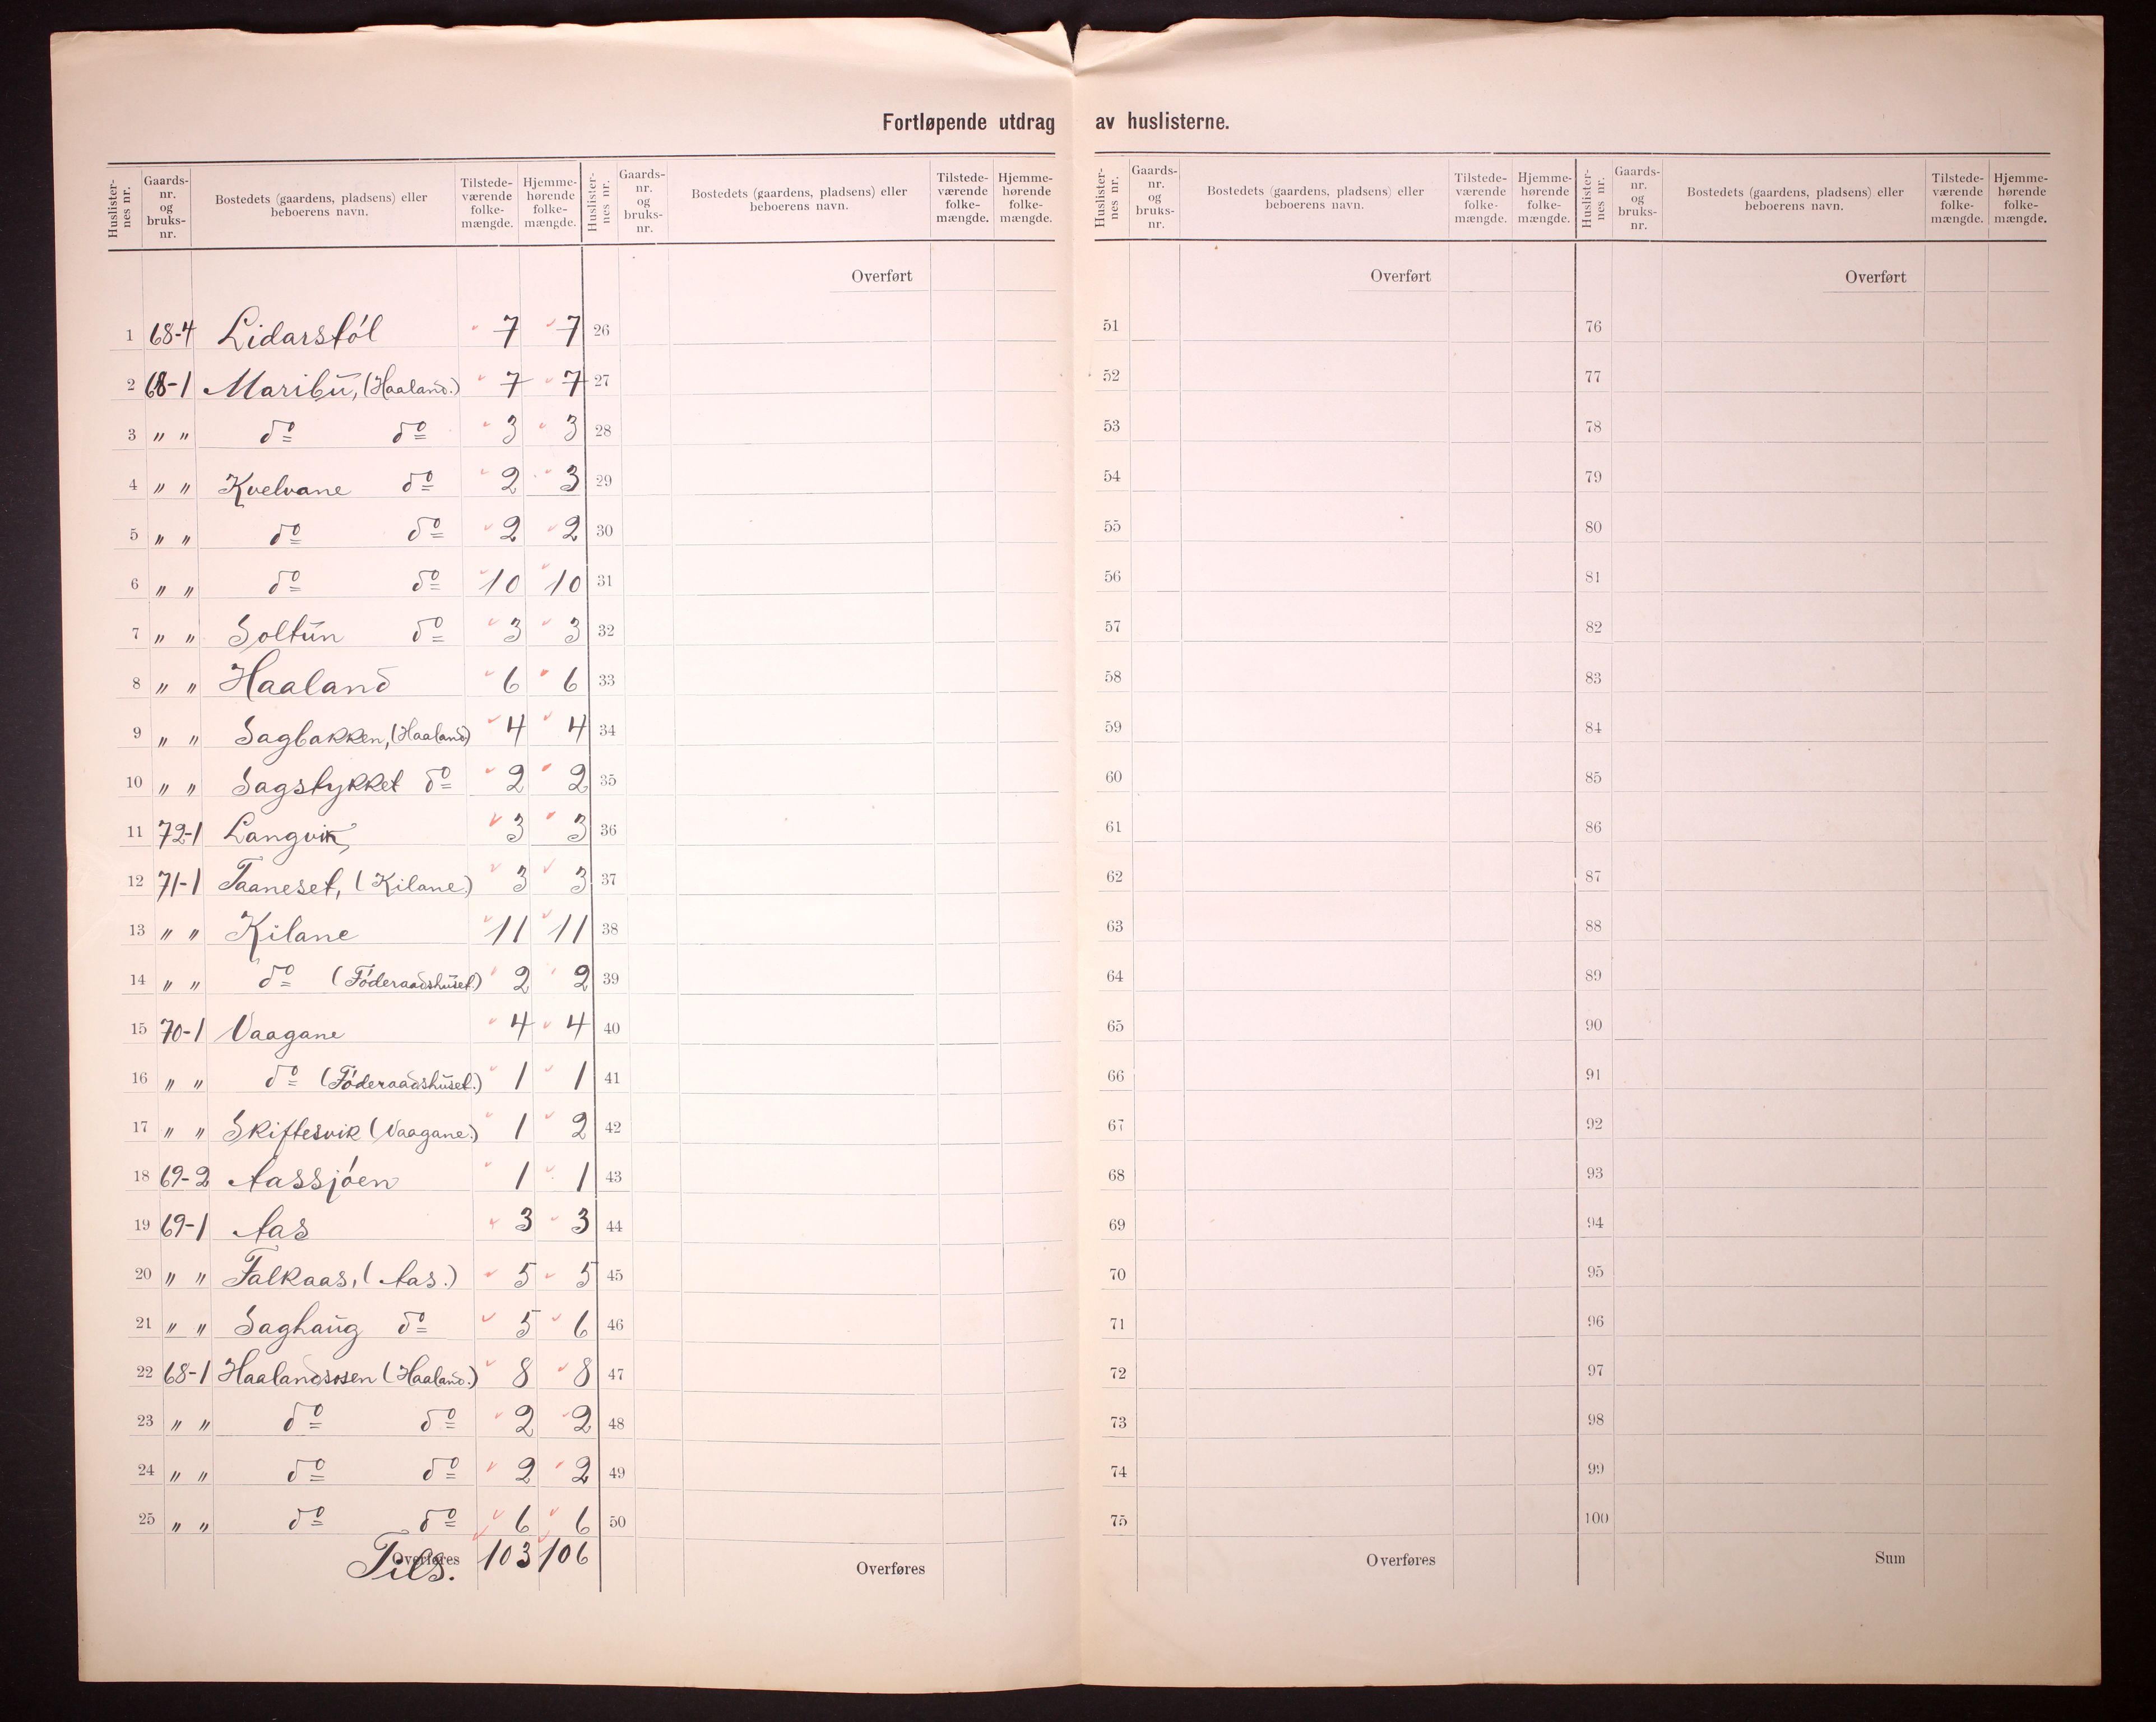 Fortløpende utdrag av huslisterne.
Huslister-nes nr. | Gaards-nr. og bruks-nr. | Bostedets (gaardens, pladsens) eller beboerens navn. | Tilstede-værende folke-mængde. | Hjemme-hørende folke-mængde. | Huslister-nes nr. | Gaards-nr. og bruks-nr. | Bostedets (gaardens, pladsens) eller beboerens navn. | Tilstede-værende folke-mængde. | Hjemme-hørende folke-mængde. | Huslister-nes nr. | Gaards-nr. og bruks-nr. | Bostedets (gaardens, pladsens) eller beboerens navn. | Tilstede-værende folke-mængde. | Hjemme-hørende folke-mængde. | Huslister-nes nr. | Gaards-nr. og bruks-nr. | Bostedets (gaardens, pladsens) eller beboerens navn. | Tilstede-værende folke-mængde. | Hjemme-hørende folke-mængde.
Overført Overført Overført
1 68-4 Lidarstól 7 7 26 51 76
2 68-1 Maribu, (Haaland.) 7 7 27 52 77
3 " " do do 3 3 28 53 78
4 " " Kvelvane do 2 3 29 54 79
5 " " do do 2 2 30 55 80
6 " " do do 10 10 31 56 81
7 " " Soltun do 3 3 32 57 82
8 " " Haaland 6 6 33 58 83
9 " " Sagbakken, (Haaland) 4 4 34 59 84
10 " " Sagstykket do 2 2 35 60 85
11 72-1 Langvik, 3 3 36 61 86
12 71-1 Taaneset, (Kilane.) 3 3 37 62 87
13 " " Kilane 11 11 38 63 88
14 " " do (Fóderaadshuset.) 2 2 39 64 89
15 70-1 Vaagane 4 4 40 65 90
16 " " do (Fóderaadshuset.) 1 1 41 66 91
17 " " Skiftesvik (Vaagane.) 1 2 42 67 92
18 69-2 Aassjóen 1 1 43 68 93
19 69-1 Aas 3 3 44 69 94
20 " " Falkaas, (Aas.) 5 5 45 70 95
21 " " Saghaug do 5 6 46 71 96
22 68-1 Haalandsosen (Haaland.) 8 8 47 72 97
23 " " do do 2 2 48 73 98
24 " " do do 2 2 49 74 99
25 " " do do 6 6 50 75 100
Overføres Tils. 103 106 Overføres Overføres Sum